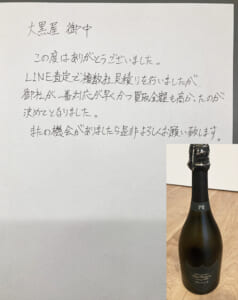 大黒屋 御中
この度はありがとうございました。
LINE査定で複数社見積りを行いましたが
御社が、一番対応が早くかつ買取金額も高かったのが
決めてとなりました。
またの機会がありましたら是非よろしくお願い致します。